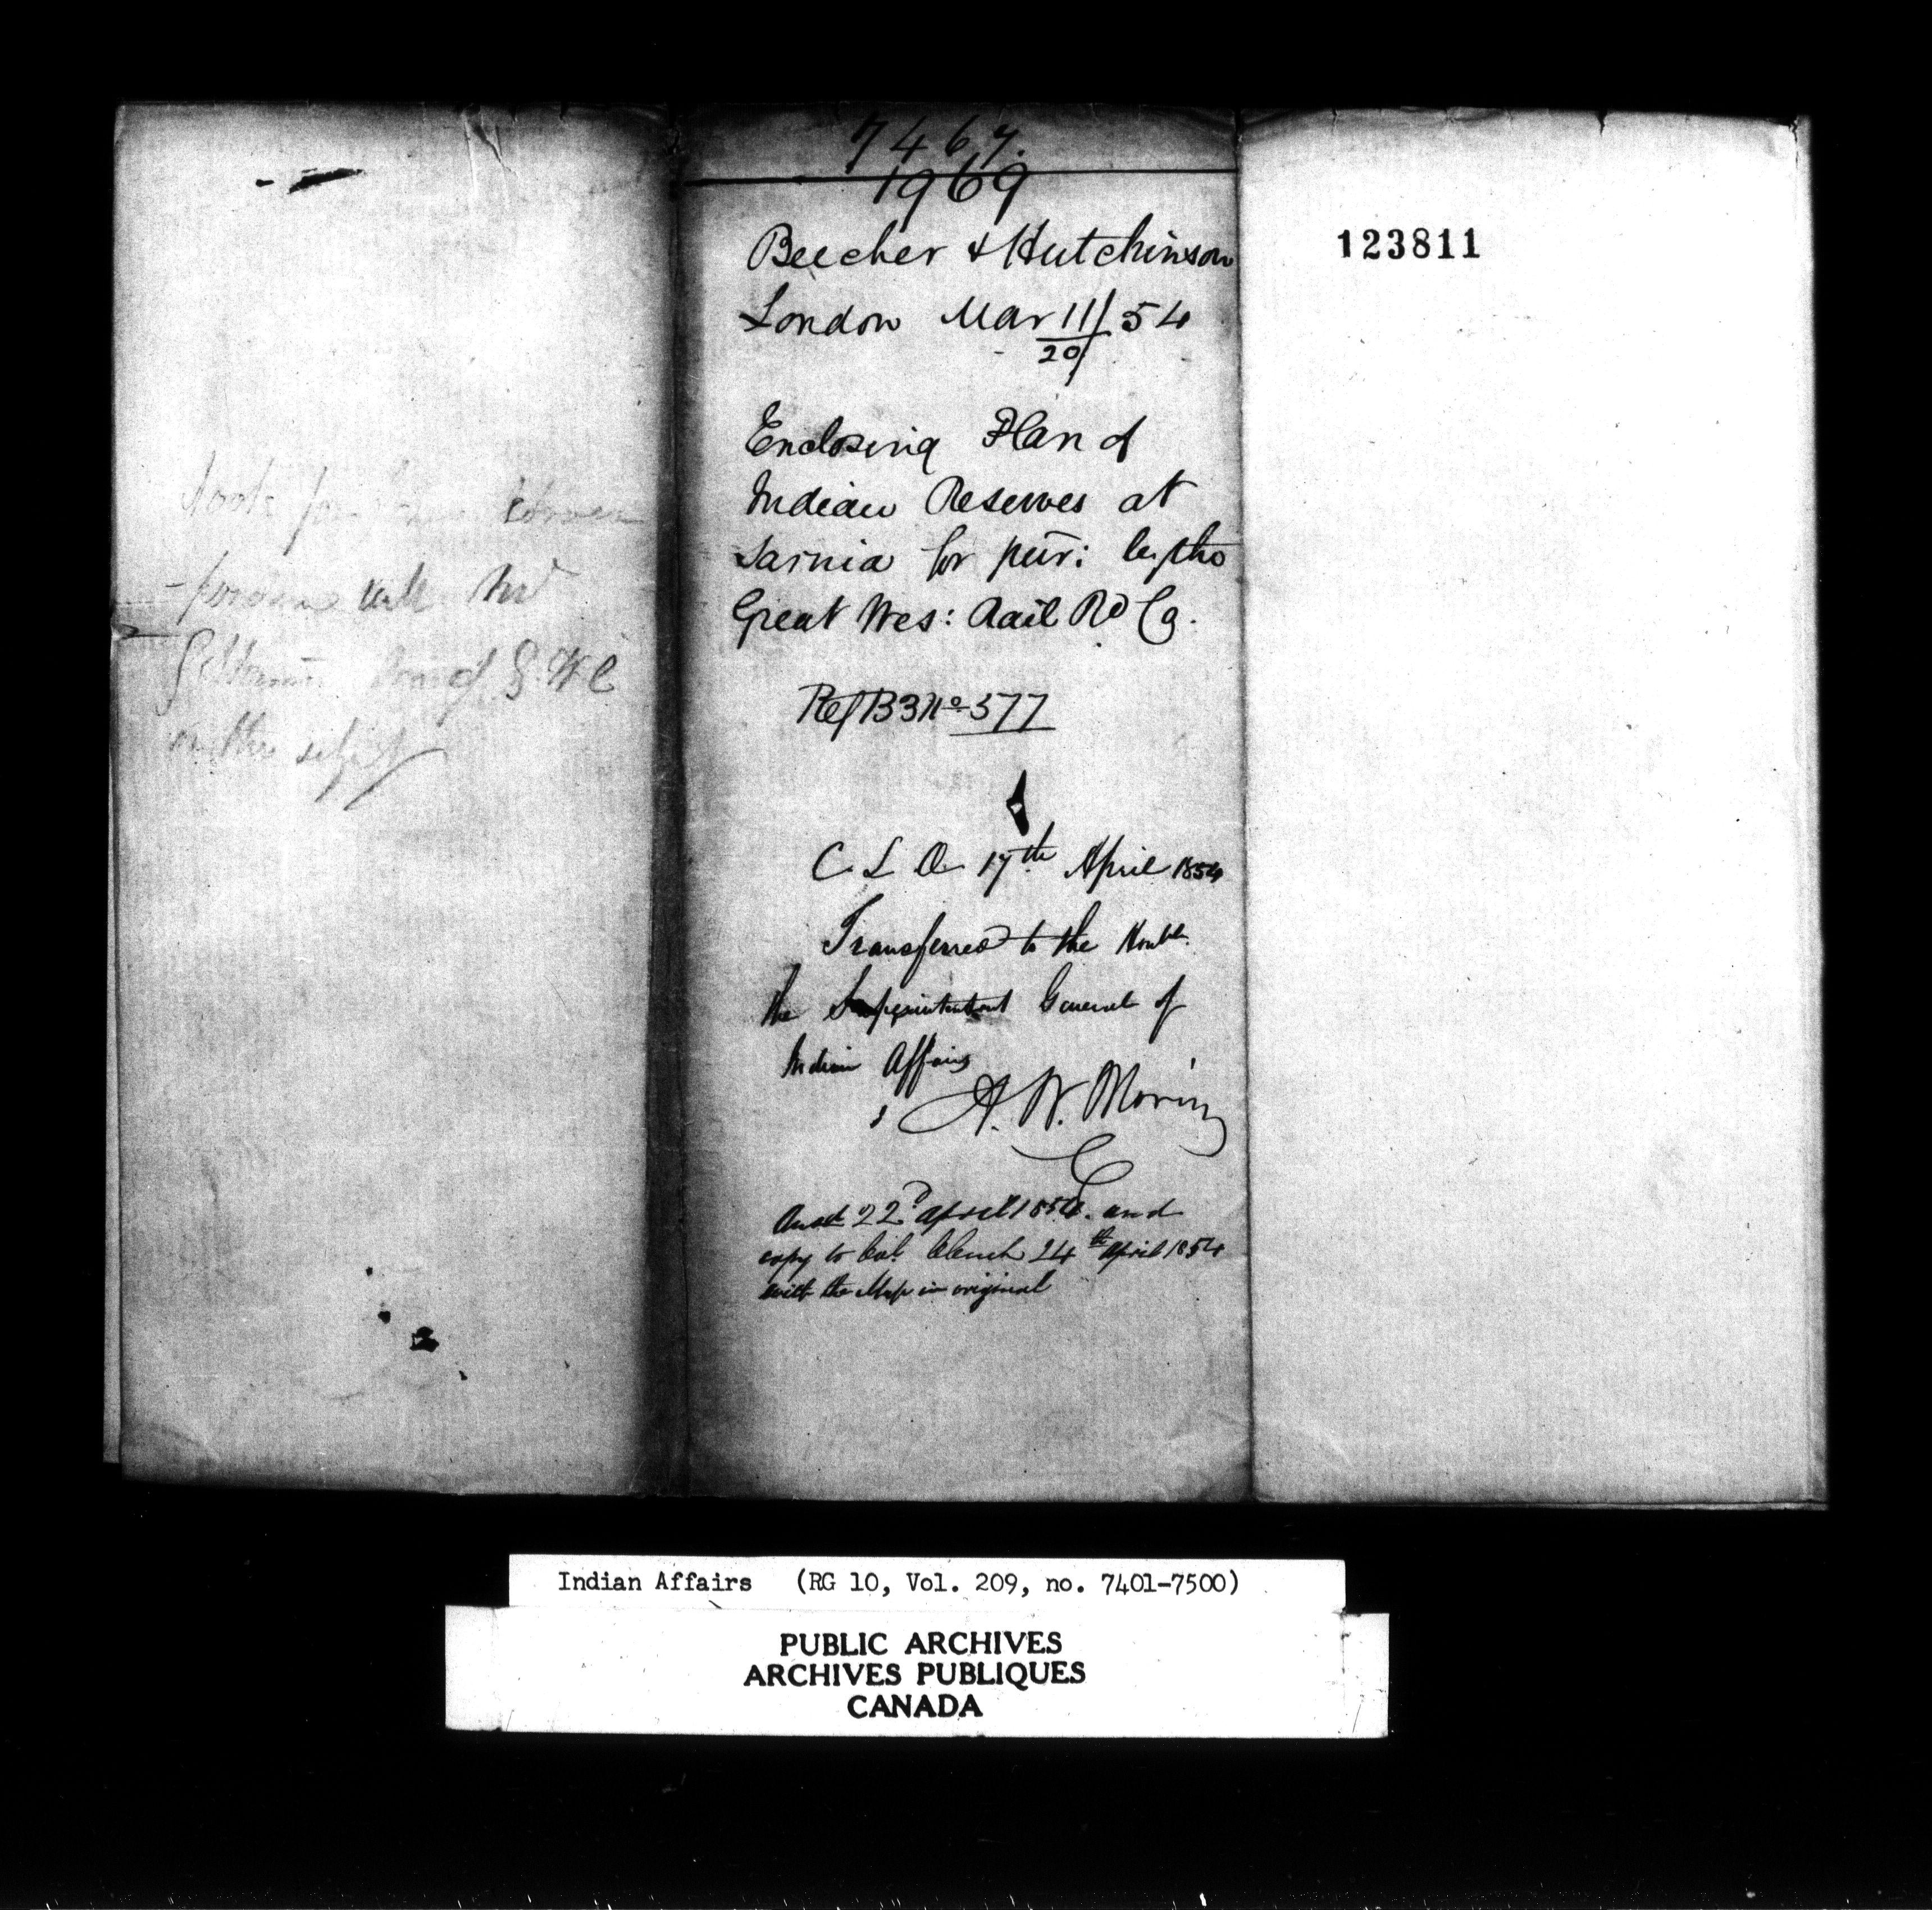 7467.
1969
Beecher & Hutchinson
London Mar 11/54
20
Enclosing Plan of
Indian Reserves at
Sarnia for pur: by the
Great Wes: Rail Rd Co.
Ref B3 No 577
C. L. O. 17th April 1854
Transferred to the Honble.
the Superintendent General of
Indian Affairs
A. N. Morin
Ansd 22d April 1854. and
copy to Col. Clench 24th April 1854
with the Map in original
123811
with Mr
G. W. C
on the subject
Indian Affairs (RG 10, Vol. 209, no. 7401-7500)
PUBLIC ARCHIVES
ARCHIVES PUBLIQUES
CANADA